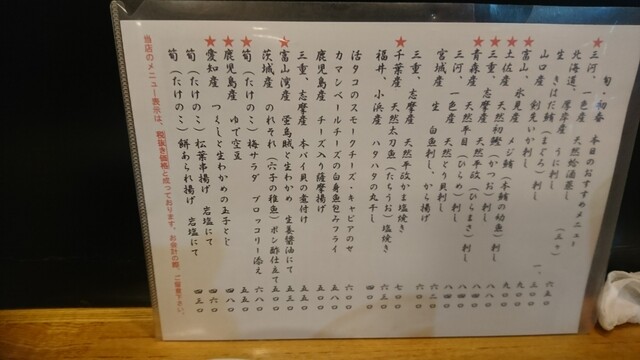 旬・初春 本日のおすすめメニュー
★三河、一色産 天然蛤酒蒸し（三ヶ） 六五〇
北海道、厚岸産 うに刺し 一、
生 きはだ鮪（まぐろ）刺し 九五〇
山口産 剣先いか刺し 九〇〇
★富山、氷見産 メジ鮪（本鮪の幼魚）刺し 九〇〇
★土佐産 天然初鰹（かつお）刺し 八八〇
★三重、志摩産 天然平政（ひらまさ）刺し 八四〇
★青森産 天然平目（ひらめ）刺し 八四〇
三河、一色産 天然とり貝刺し
宮城産 生 白魚刺し、から揚げ 六二〇
三重、志摩産 天然平政かま塩焼き 八四〇
★千葉産 天然太刀魚（たちうお）塩焼き 七〇〇
福井、小浜産 ハタハタの丸干し 六三〇
活タコのスモークチーズ・キャビアのせ 六〇〇
カマンベールチーズの白身魚包みフライ 五八〇
鹿児島産 チーズ入り薩摩揚げ 五五〇
三重、志摩産 本バイ貝の煮付け 五五〇
★富山湾産 蛍烏賊と生わかめ 生姜醤油にて 五五〇
茨城産 のれそれ（穴子の稚魚）ポン酢仕立て 五五〇
★筍（たけのこ）梅サラダ ブロッコリー添え 六八〇
★鹿児島産 ゆで空豆 五五〇
★愛知産 つくしと生わかめの玉子とじ 五八〇
筍（たけのこ）松葉串揚げ 岩塩にて 四六〇
筍（たけのこ）餅あられ揚げ 岩塩にて 四三〇
当店のメニュー表示は、税抜き価格と成っております。お会計の際、ご留意下さい。